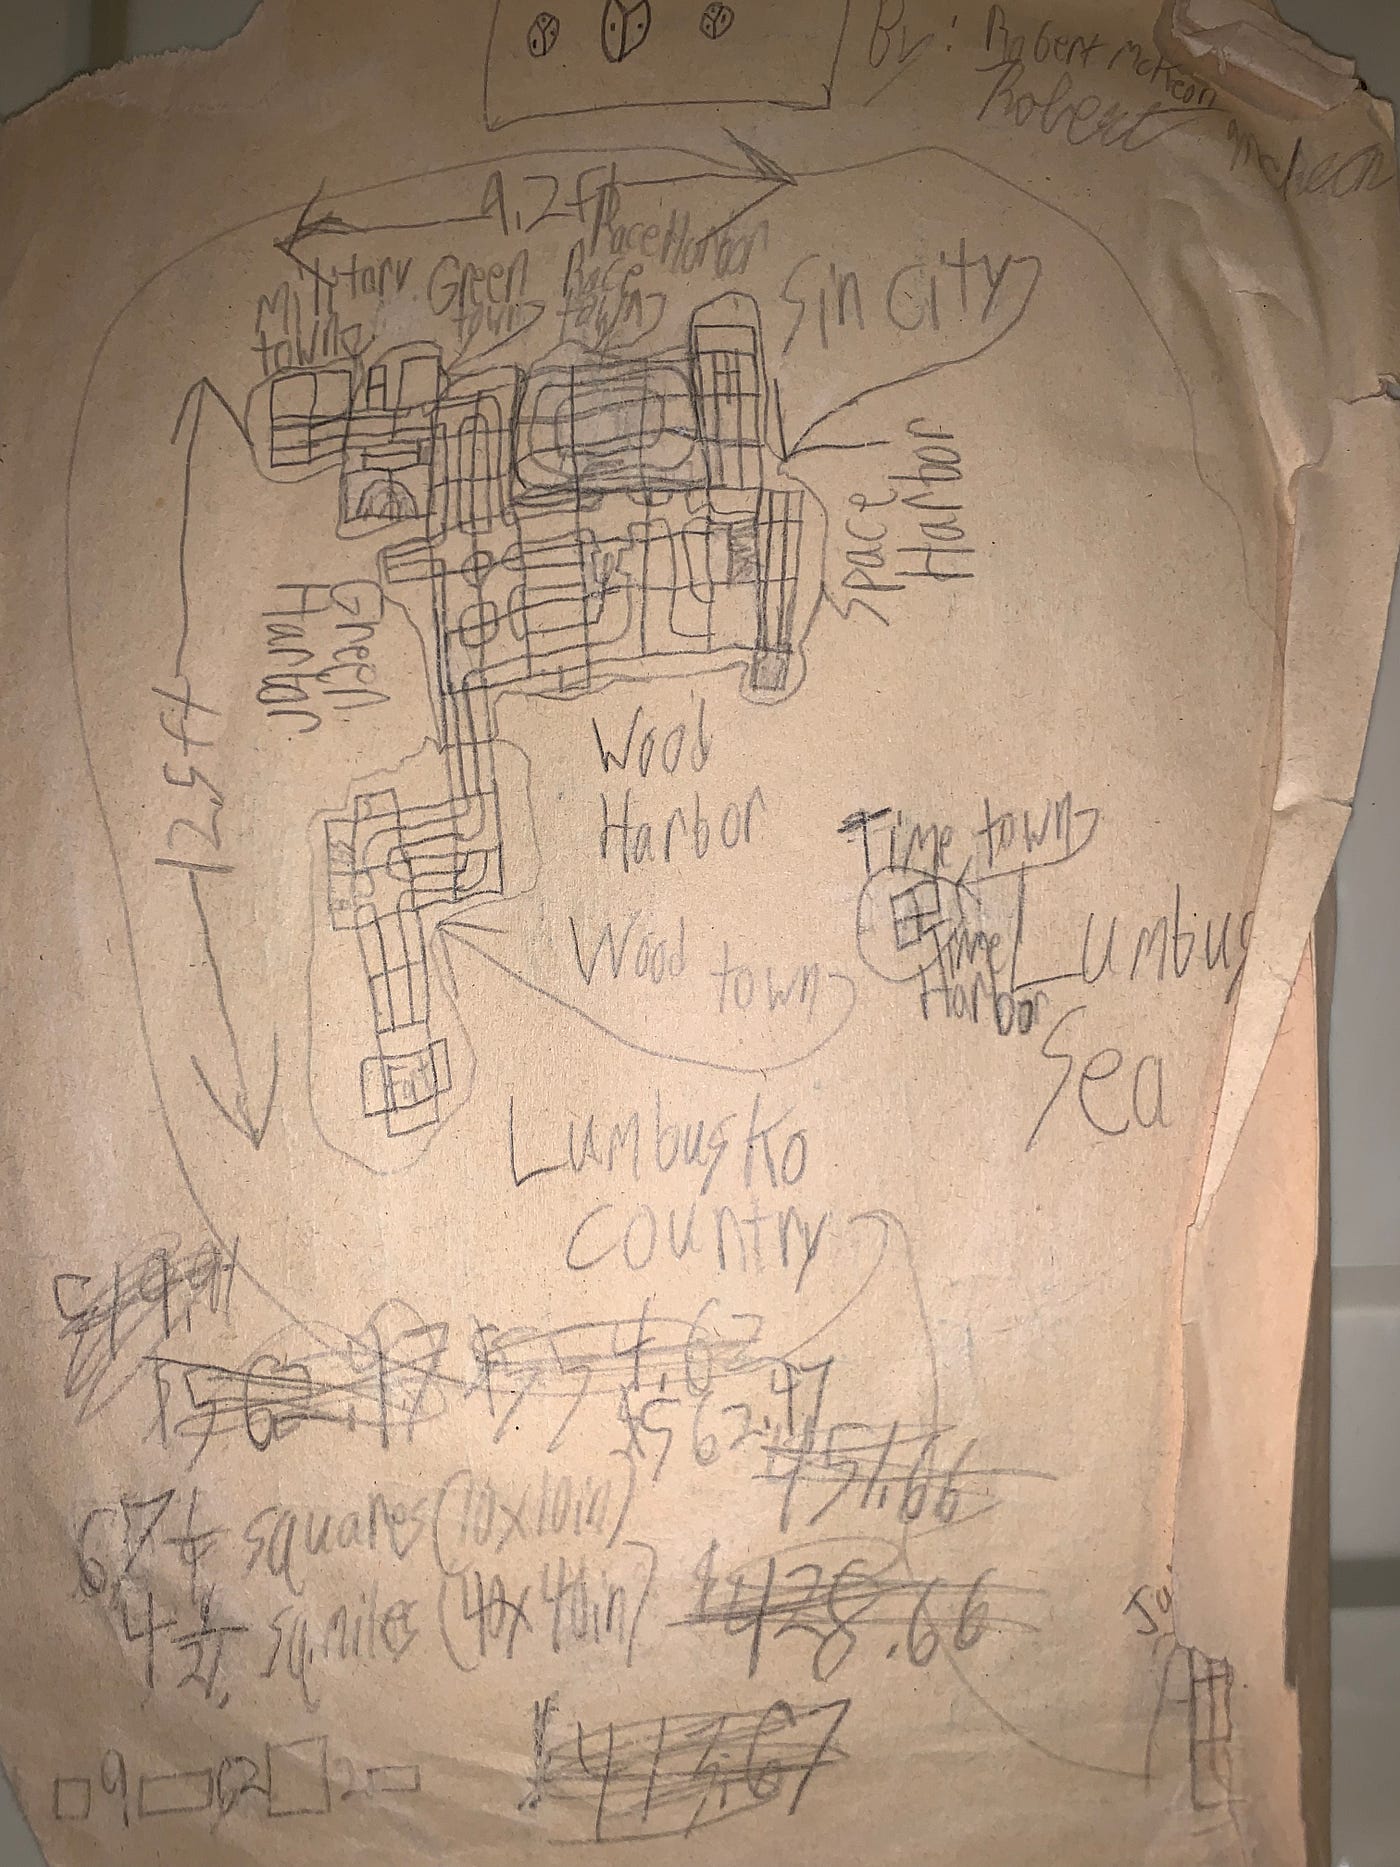 By: Robert McKeon
Robert McKeon
9.2ft
Race Harbor
Military
town
Green
town
Race
town
Sin City
Space
Harbor
Green
Harbor
12.5ft
Wood
Harbor
Time town
Time
Harbor
Lumbus
Sea
Wood town
Lumbusko
country
$562.47
451.66
67 1/4 squares (10x10in)
4 1/2 sq. miles (40x40in)
428.66
413.67
9
62
2